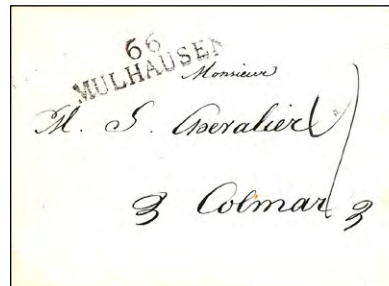 66
MULHAUSEN
Monsieur
M. S. Chevalier
Colmar